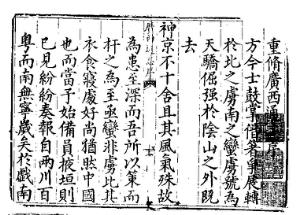 重脩廣西城序
方今士鼓掌借箸爭展轉
於北之虜南之蠻虜號為
天驕倔强於陰山之外既
去
神京不十舍且其風氣殊故
為患至深而吾所以策而
杖之為至亟蠻非虜比其
衣食寢處好尚猶然中國
也而當子始備員掖垣則
已見紛紛奏報自兩川百
粵而南無寧歲矣於戲南